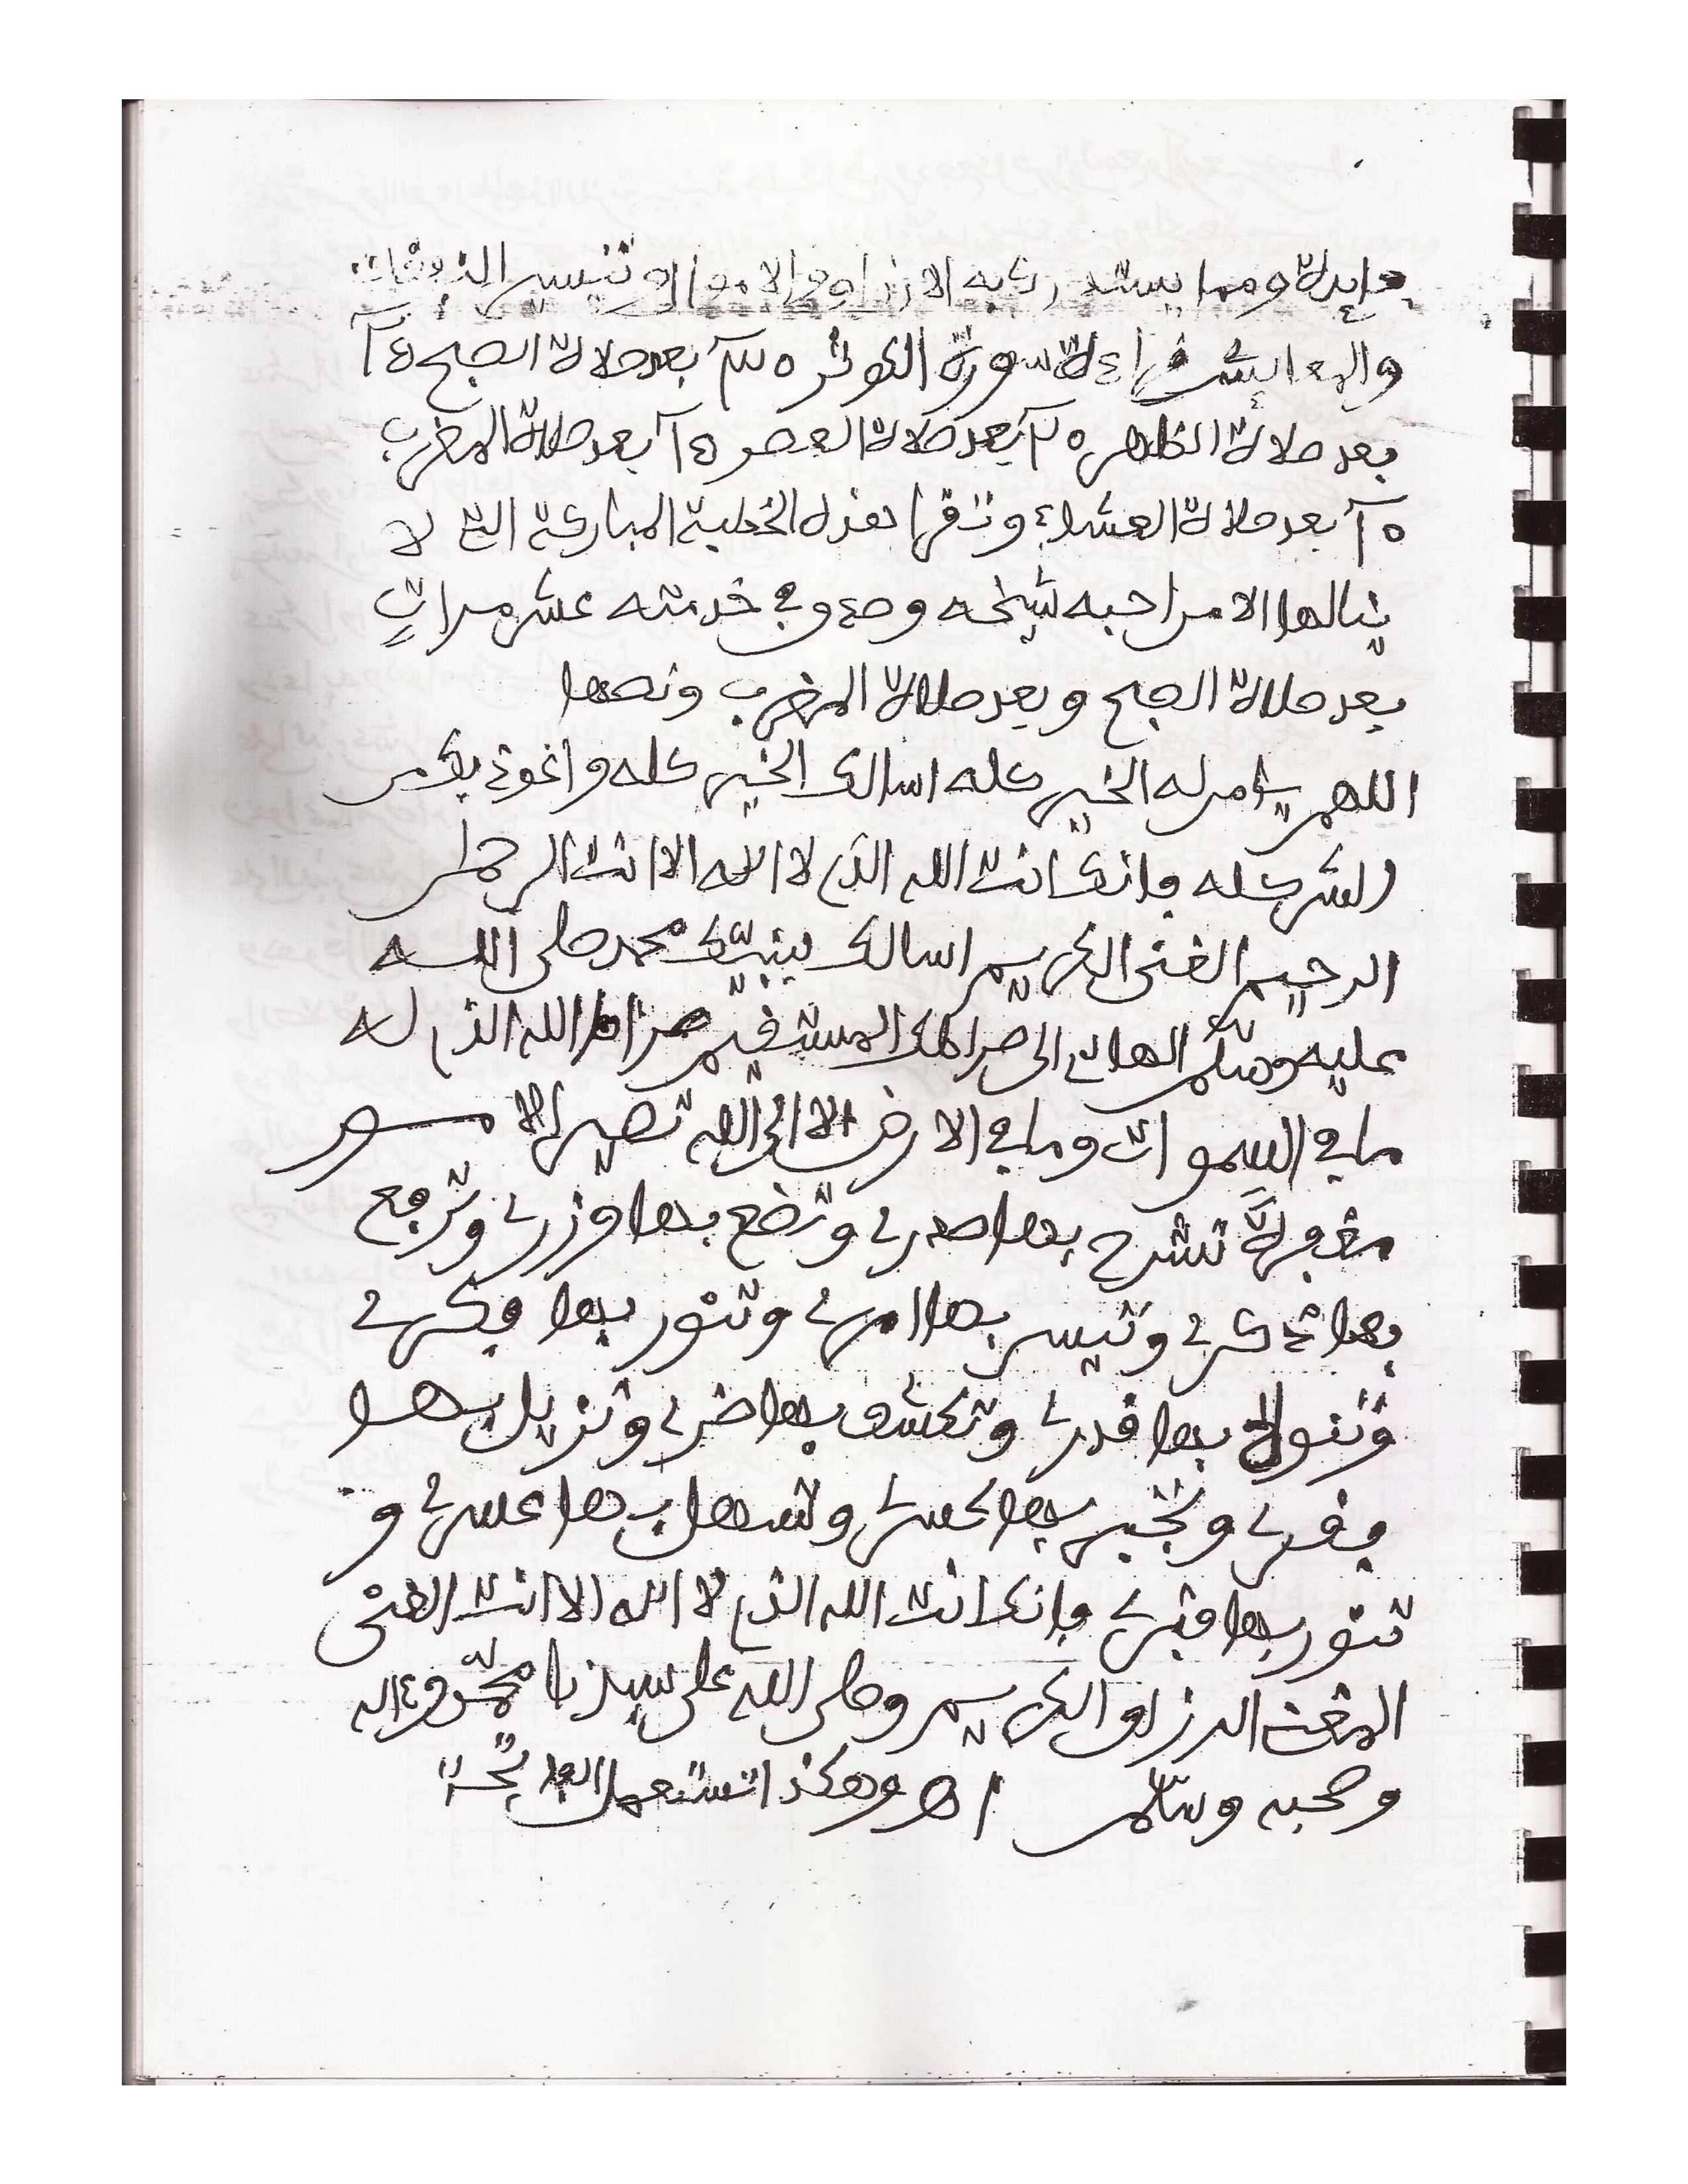 فايدة ومما يستدرك به الارزاق والاموال وتتيسر النفقات
والمعايش قراءة سورة الكوثر ٣٥ بعد صلاة الصبح
بعد صلاة الظهر ٢٥ بعد صلاة العصر بعد صلاة المغرب
بعد صلاة العشاء وتقرا هذه الخطبة المباركة التي لا
ينالها الا من احبه شيخه وهو في خدمته عشر مرات
بعد صلاة الصبح وبعد صلاة المغرب ونصها
اللهم يا من له الخير كله اسالك الخير كله واعوذ بك من
الشر كله فانك انت الله الذي لا اله الا انت الرحمن
الرحيم الغني الكريم اسالك بنبيك محمد صلى الله
عليه وسلم الهادي الى صراطك المستقيم صراط الله الذي له
ما في السموات وما في الارض الا الى الله تصير الامور
مغفرة تشرح بها صدري وتضع بها وزري وترفع
بها ذكري وتيسر بها امري وتنور بها فكري
وتنور بها قدري وتكشف بها ضري وتزيل بها
فقري وتجبر بها كسري وتسهل بها عسري و
تنور بها قبري فانك انت الله الذي لا اله الا انت الغني
المغني الرزاق الكريم وصلى الله على سيدنا محمد وءاله
وصحبه وسلم اهـ وهكذا تستعمل الفاتحة